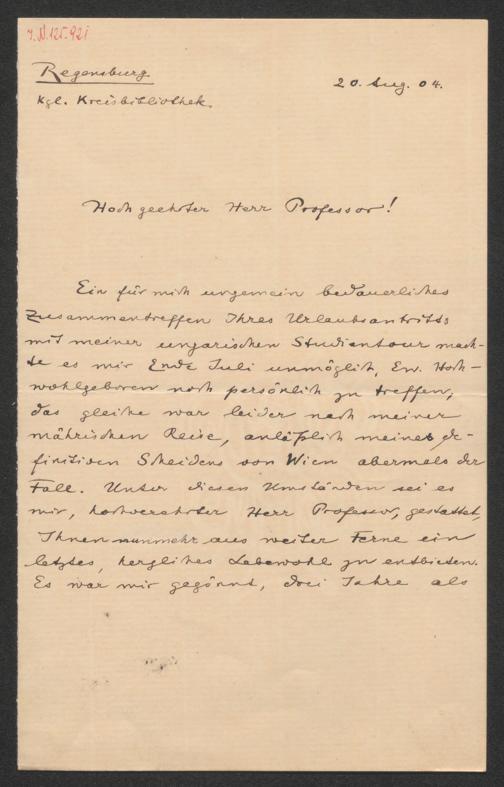 J.N. 125.921
Regensburg
Kgl. Kreisbibliothek.
20. Aug. 04.
Hochgeehrter Herr Professor!
Ein für mich ungemein bedauerliches
Zusammentreffen Ihres Urlaubsantritts
mit meiner ungarischen Studientour mach-
te es mir Ende Juli unmöglich, Ew. Hoch-
wohlgeboren noch persönlich zu treffen,
das gleiche war leider nach meiner
mährischen Reise, anläßlich meines de-
finitiven Scheidens von Wien abermals der
Fall. Unter diesen Umständen sei es
mir, hochverehrter Herr Professor, gestattet,
Ihnen nunmehr aus weiter Ferne ein
letztes, herzliches Lebewohl zu entbieten.
Es war mir gegönnt, drei Jahre als